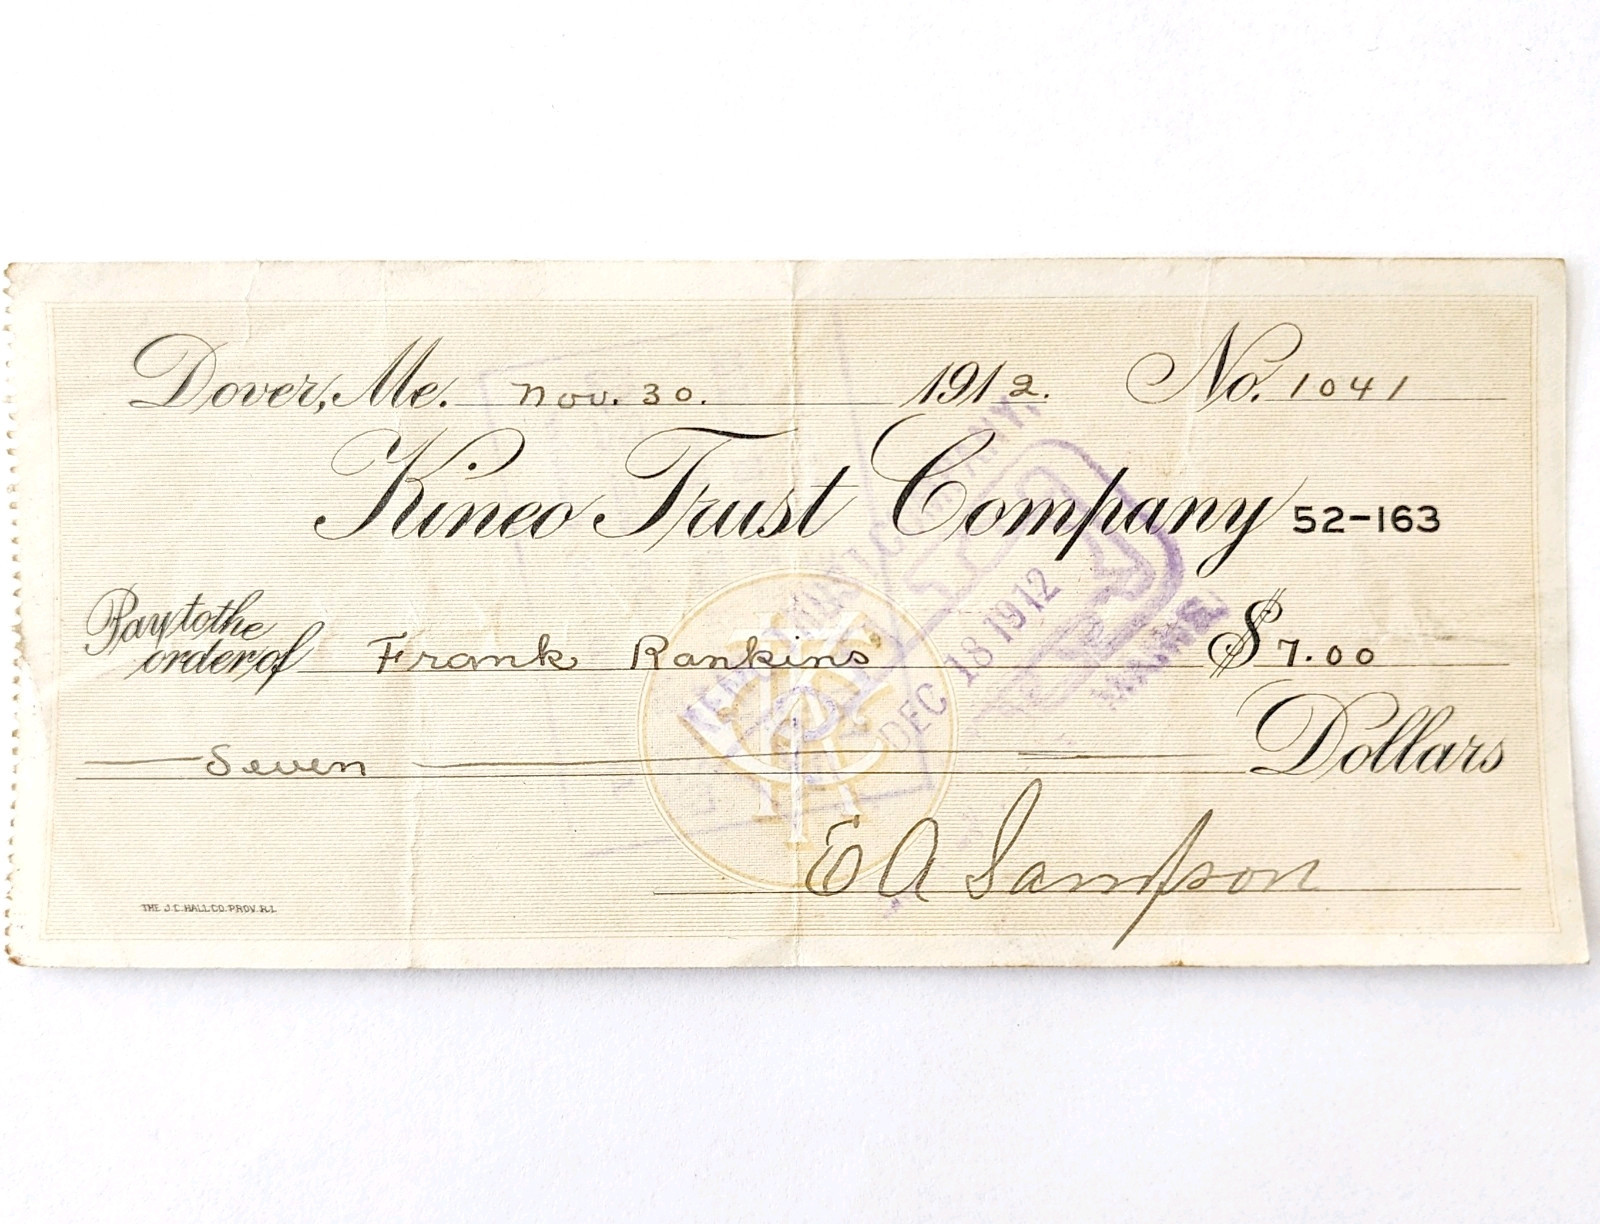 Dover, Me. Nov. 30. 1912. No. 1041
Kineo Trust Company 52-163
Pay to the
order of Frank Rankins $7.00
DEC 18 1912
MAINE
Seven Dollars
E A Sampson
THE J.C. HALL CO. PROV. R.I.